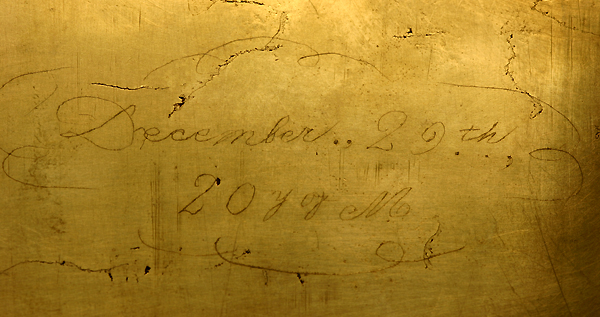 December .. 29th
20